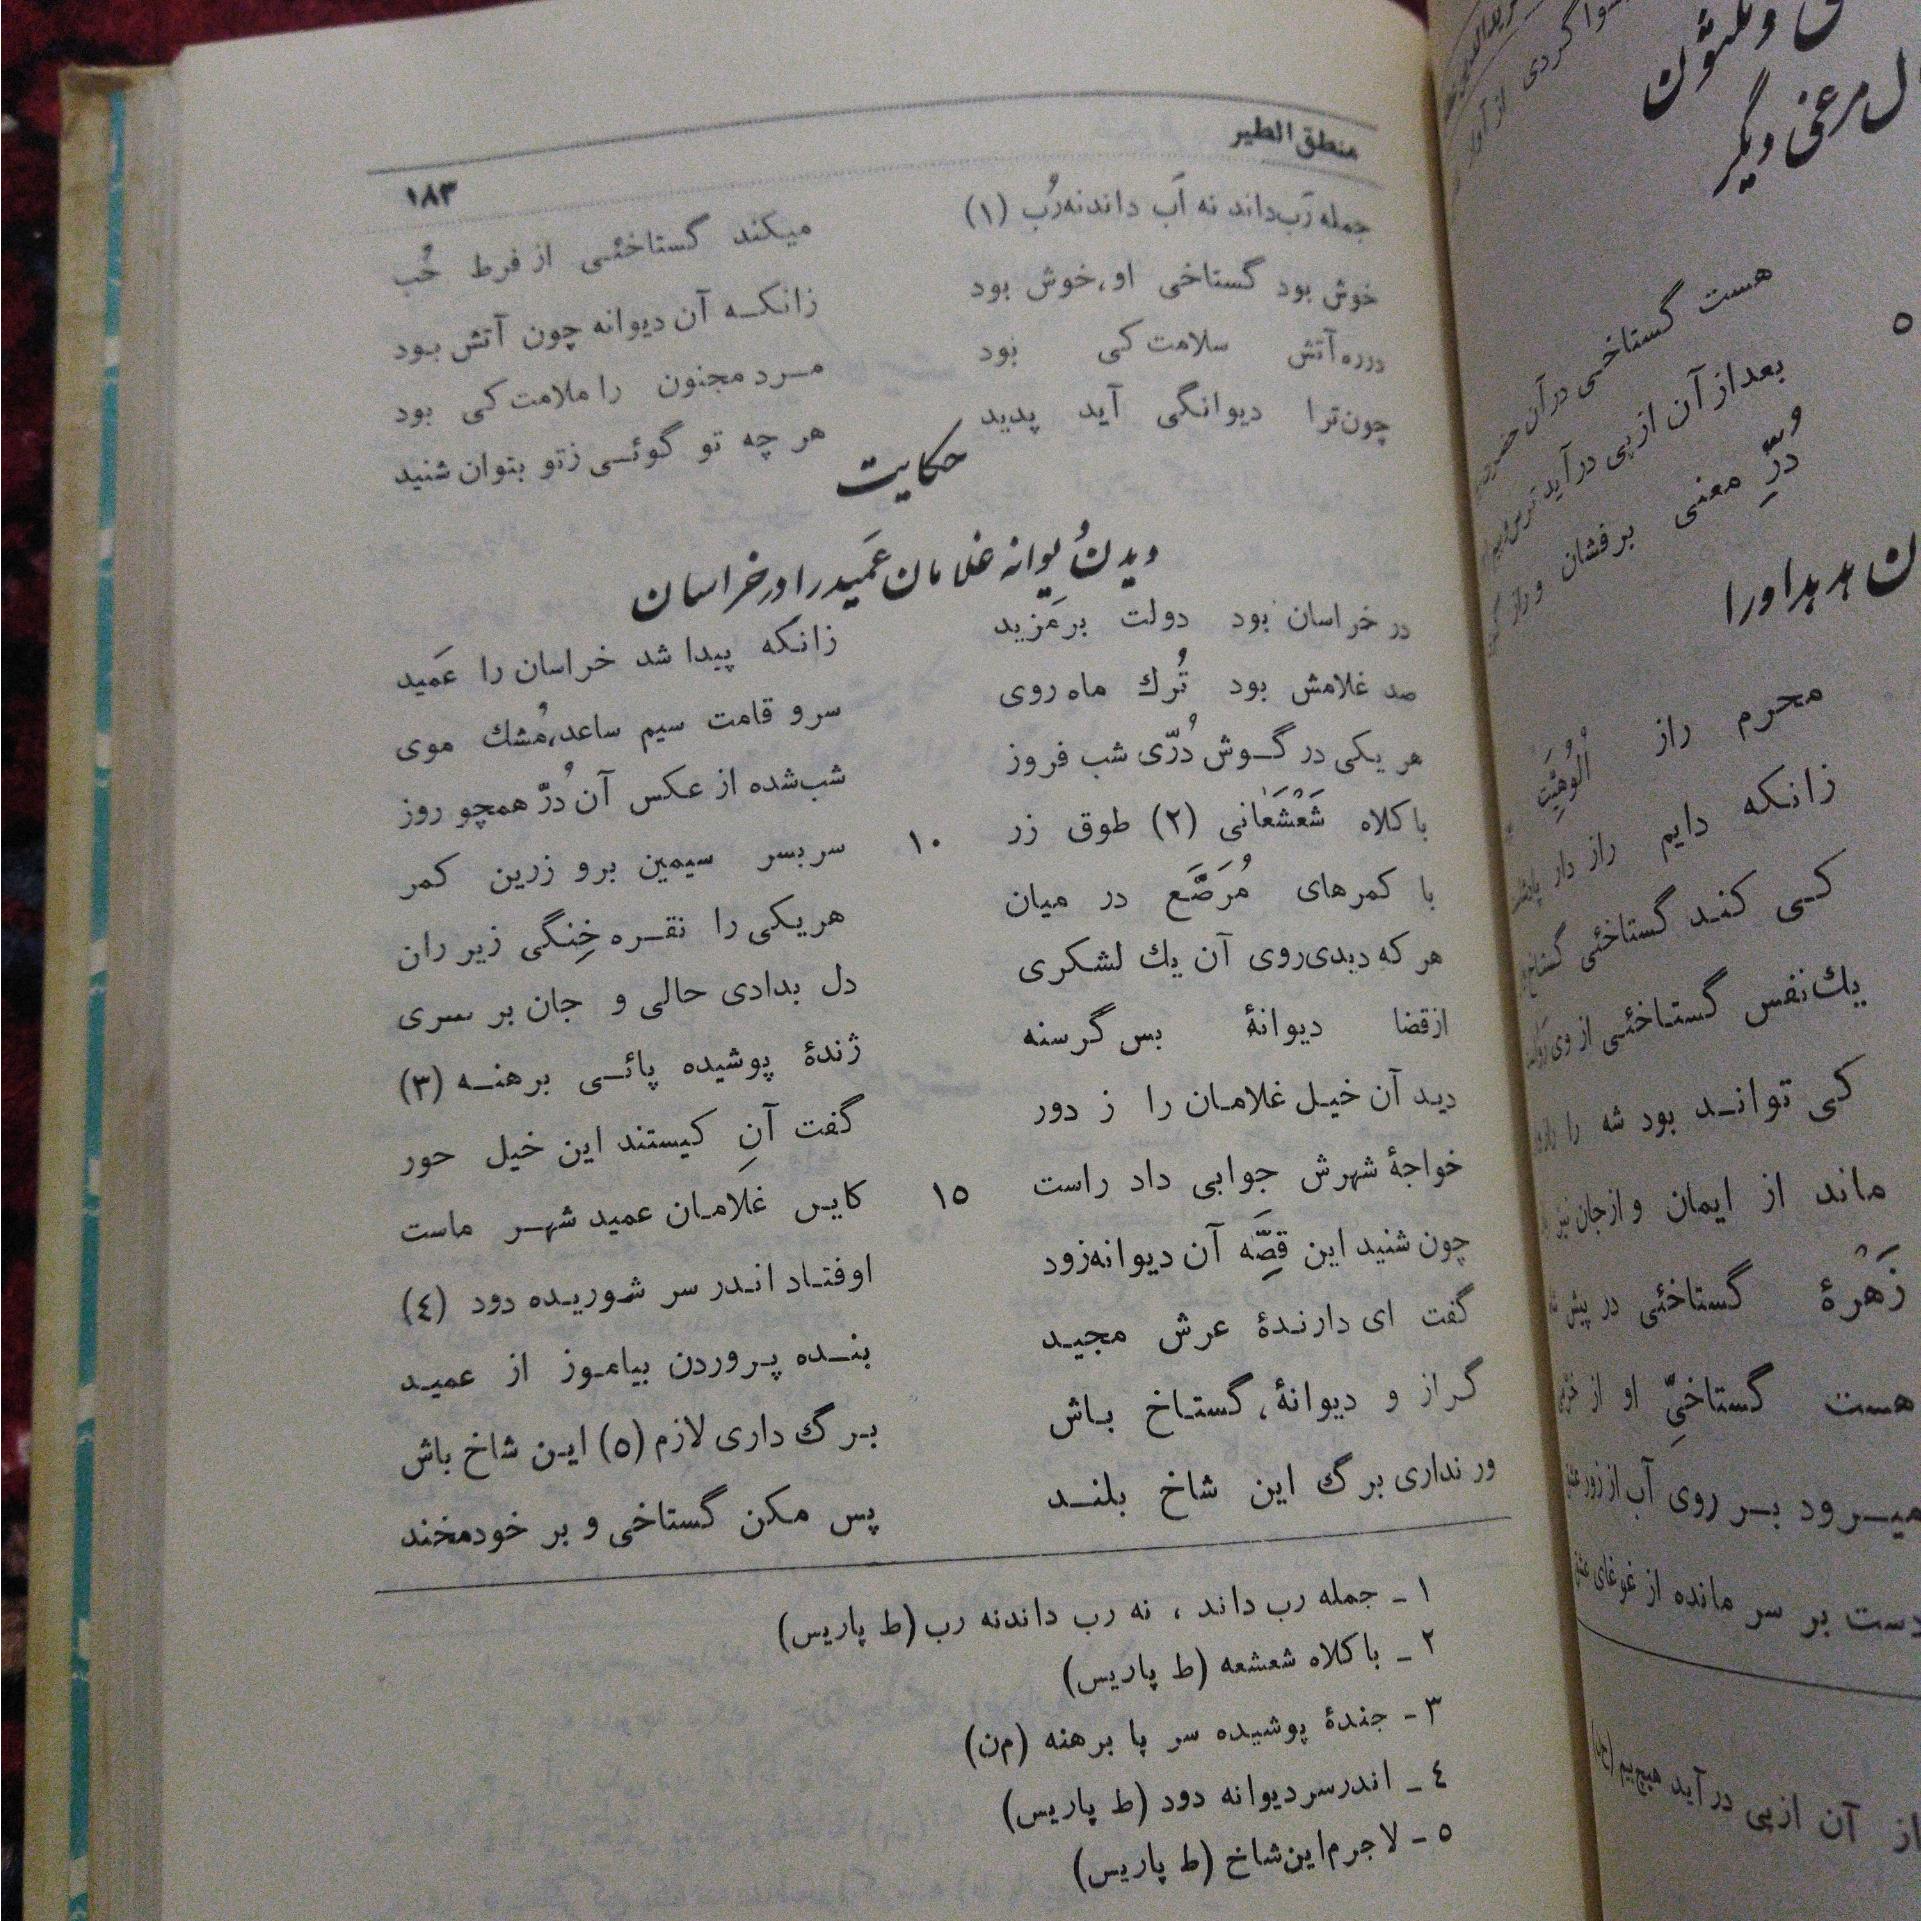 منطق الطیر
۱۸۳
میکند گستاخئی از فرط حُب جمله رَب داند نه اَب داند نه رُب (۱)
زانکه آن دیوانه چون آتش بود خوش بود گستاخی او، خوش بود
مرد مجنون را ملامت کی بود در ره آتش سلامت کی بود
هر چه تو گوئی ز تو بتوان شنید چون ترا دیوانگی آید پدید
حکایت
دیدن دیوانه غلامان عَمید را در خراسان
در خراسان بود دولت بر مَزید زانکه پیدا شد خراسان را عَمید
صد غلامش بود تُرك ماه روی سرو قامت سیم ساعد، مُشك موی
هر یکی در گوش دُرّی شب فروز شب شده از عکس آن دُرّ همچو روز
با کلاه شَعْشَعانی (۲) طوق زر ۱۰ سربسر سیمین برو زرین کمر
با کمرهای مُرَصَّع در میان هر یکی را نقره خِنگی زیر ران
هر که دیدی روی آن یك لشکری دل بدادی حالی و جان بر سری
از قضا دیوانهٔ بس گرسنه ژندهٔ پوشیده پائی برهنه (۳)
دید آن خیل غلامان را ز دور گفت آنِ کیستند این خیل حور
خواجهٔ شهرش جوابی داد راست ۱۵ کاین غلامان عمید شهر ماست
چون شنید این قِصَّه آن دیوانه زود اوفتاد اندر سر شوریده دود (٤)
گفت ای دارندهٔ عرش مجید بنده پروردن بیاموز از عمید
گر از و دیوانهٔ، گستاخ باش برگ داری لازم (٥) این شاخ باش
ور نداری برگ این شاخ بلند پس مکن گستاخی و بر خود مخند
۱ ـ جمله رب داند ، نه رب داندنه رب (ط پاریس)
۲ ـ با کلاه شعشعه (ط پاریس)
۳ ـ جندهٔ پوشیده سر پا برهنه (من)
٤ ـ اندر سر دیوانه دود (ط پاریس)
٥ ـ لاجرم این شاخ (ط پاریس)
ل مرغی دیگر
هست گستاخی در آن حضرت
بعد از آن از پی در آید
دُرِّ معنی برفشان و راز
۵
محرم راز اُلوُهِیَّت
زانکه دایم راز دار
کی کند گستاخئی
یك نفس گستاخئی از وی
کی تواند بود شه را
ماند از ایمان و از جان نیز
زَهْرهٔ گستاخئی در پیش
هست گستاخیِّ او از
میرود بر روی آب از زور
دست بر سر مانده از غوغای
از آن از پی در آید هیچ بیم